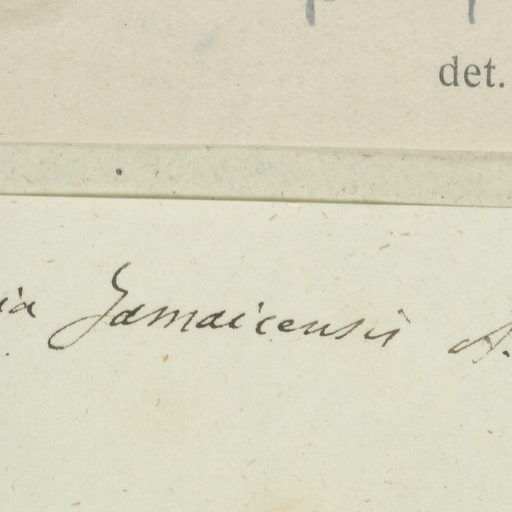 det.
ia Jamaicensis A.